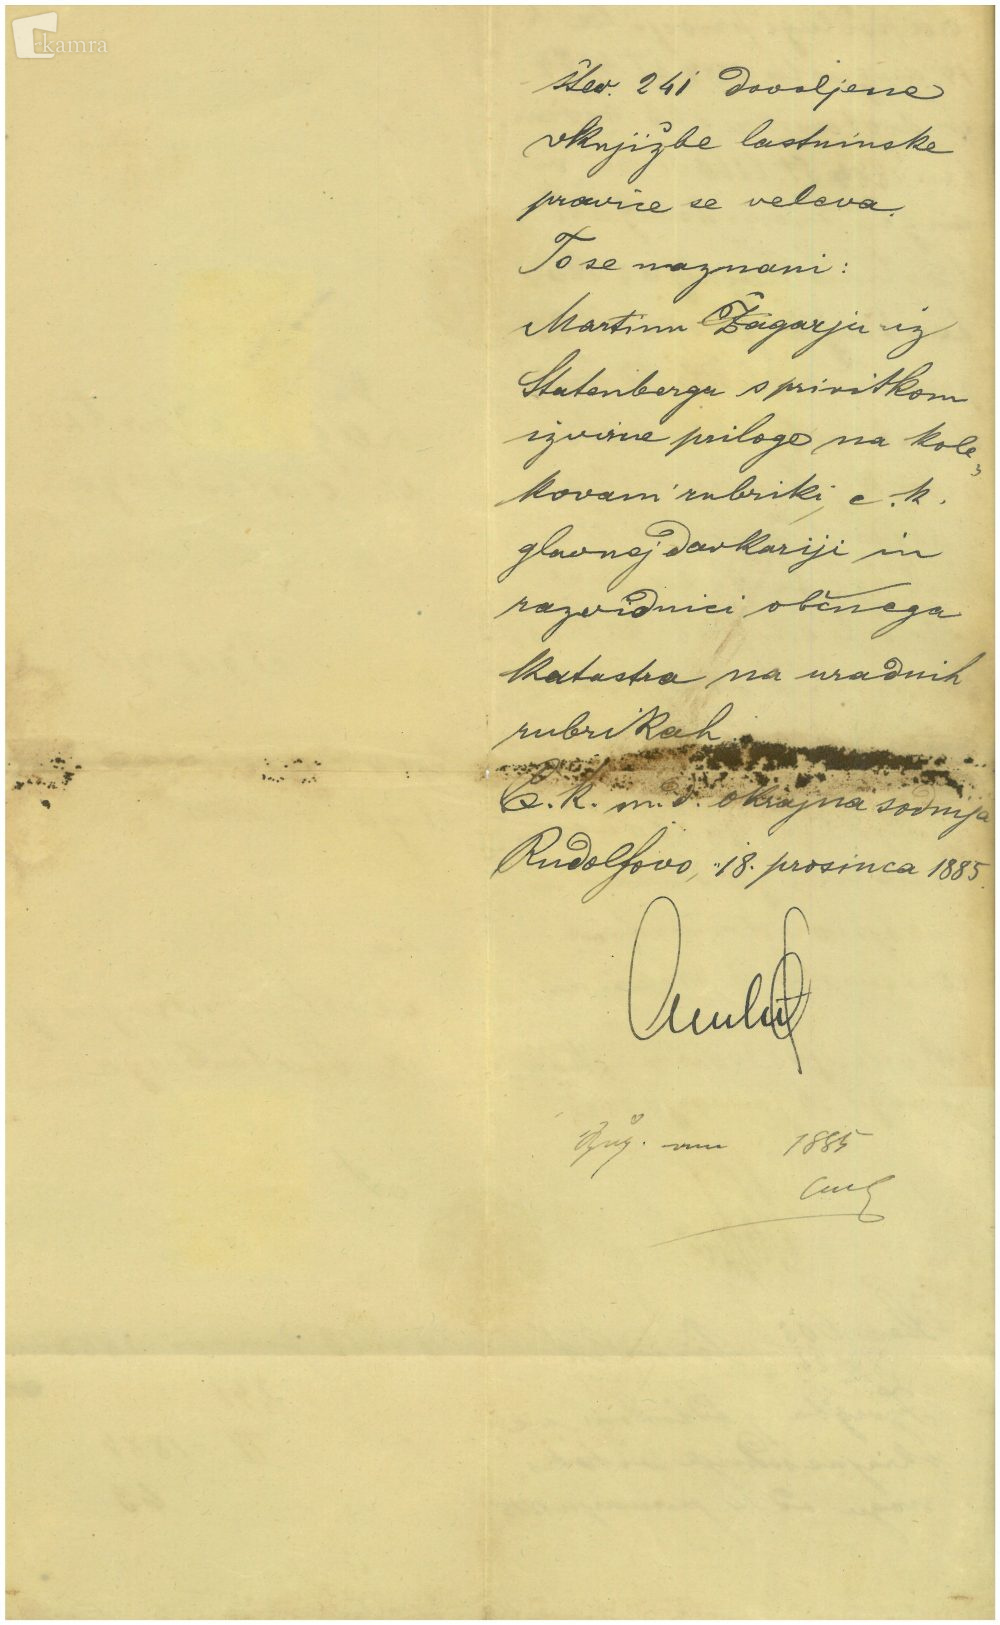 kamra
štev. 241 dovoljene
vknjižbe lastninske
pravice se veleva.
To se naznani:
Martinu Žagarju iz
Statenberga s privitkom
izvirne priloge na kole
kovani rubriki, c. k.
glavnej davkariji in
razvidnici občnega
katastra na uradnih
rubrikah
C. k. m. d. okrajna sodnija
Rudolfovo, 18. prosinca 1885.
1885